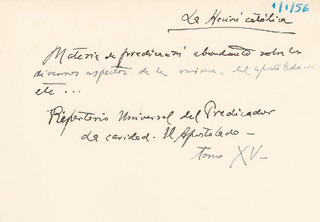 1/1/56
La Acción católica
Materia de predicación abundante sobre los
diversos aspectos de la misma. del apostolado...
etc...
Repertorio Universal del Predicador
La caridad. El Apostolado -
tomo XV -